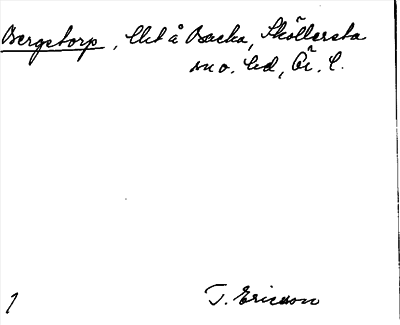 Bergstorp, Ut å Backa, Sköllersta
sn o. hd, Ör. l.
T. Ericsson
1